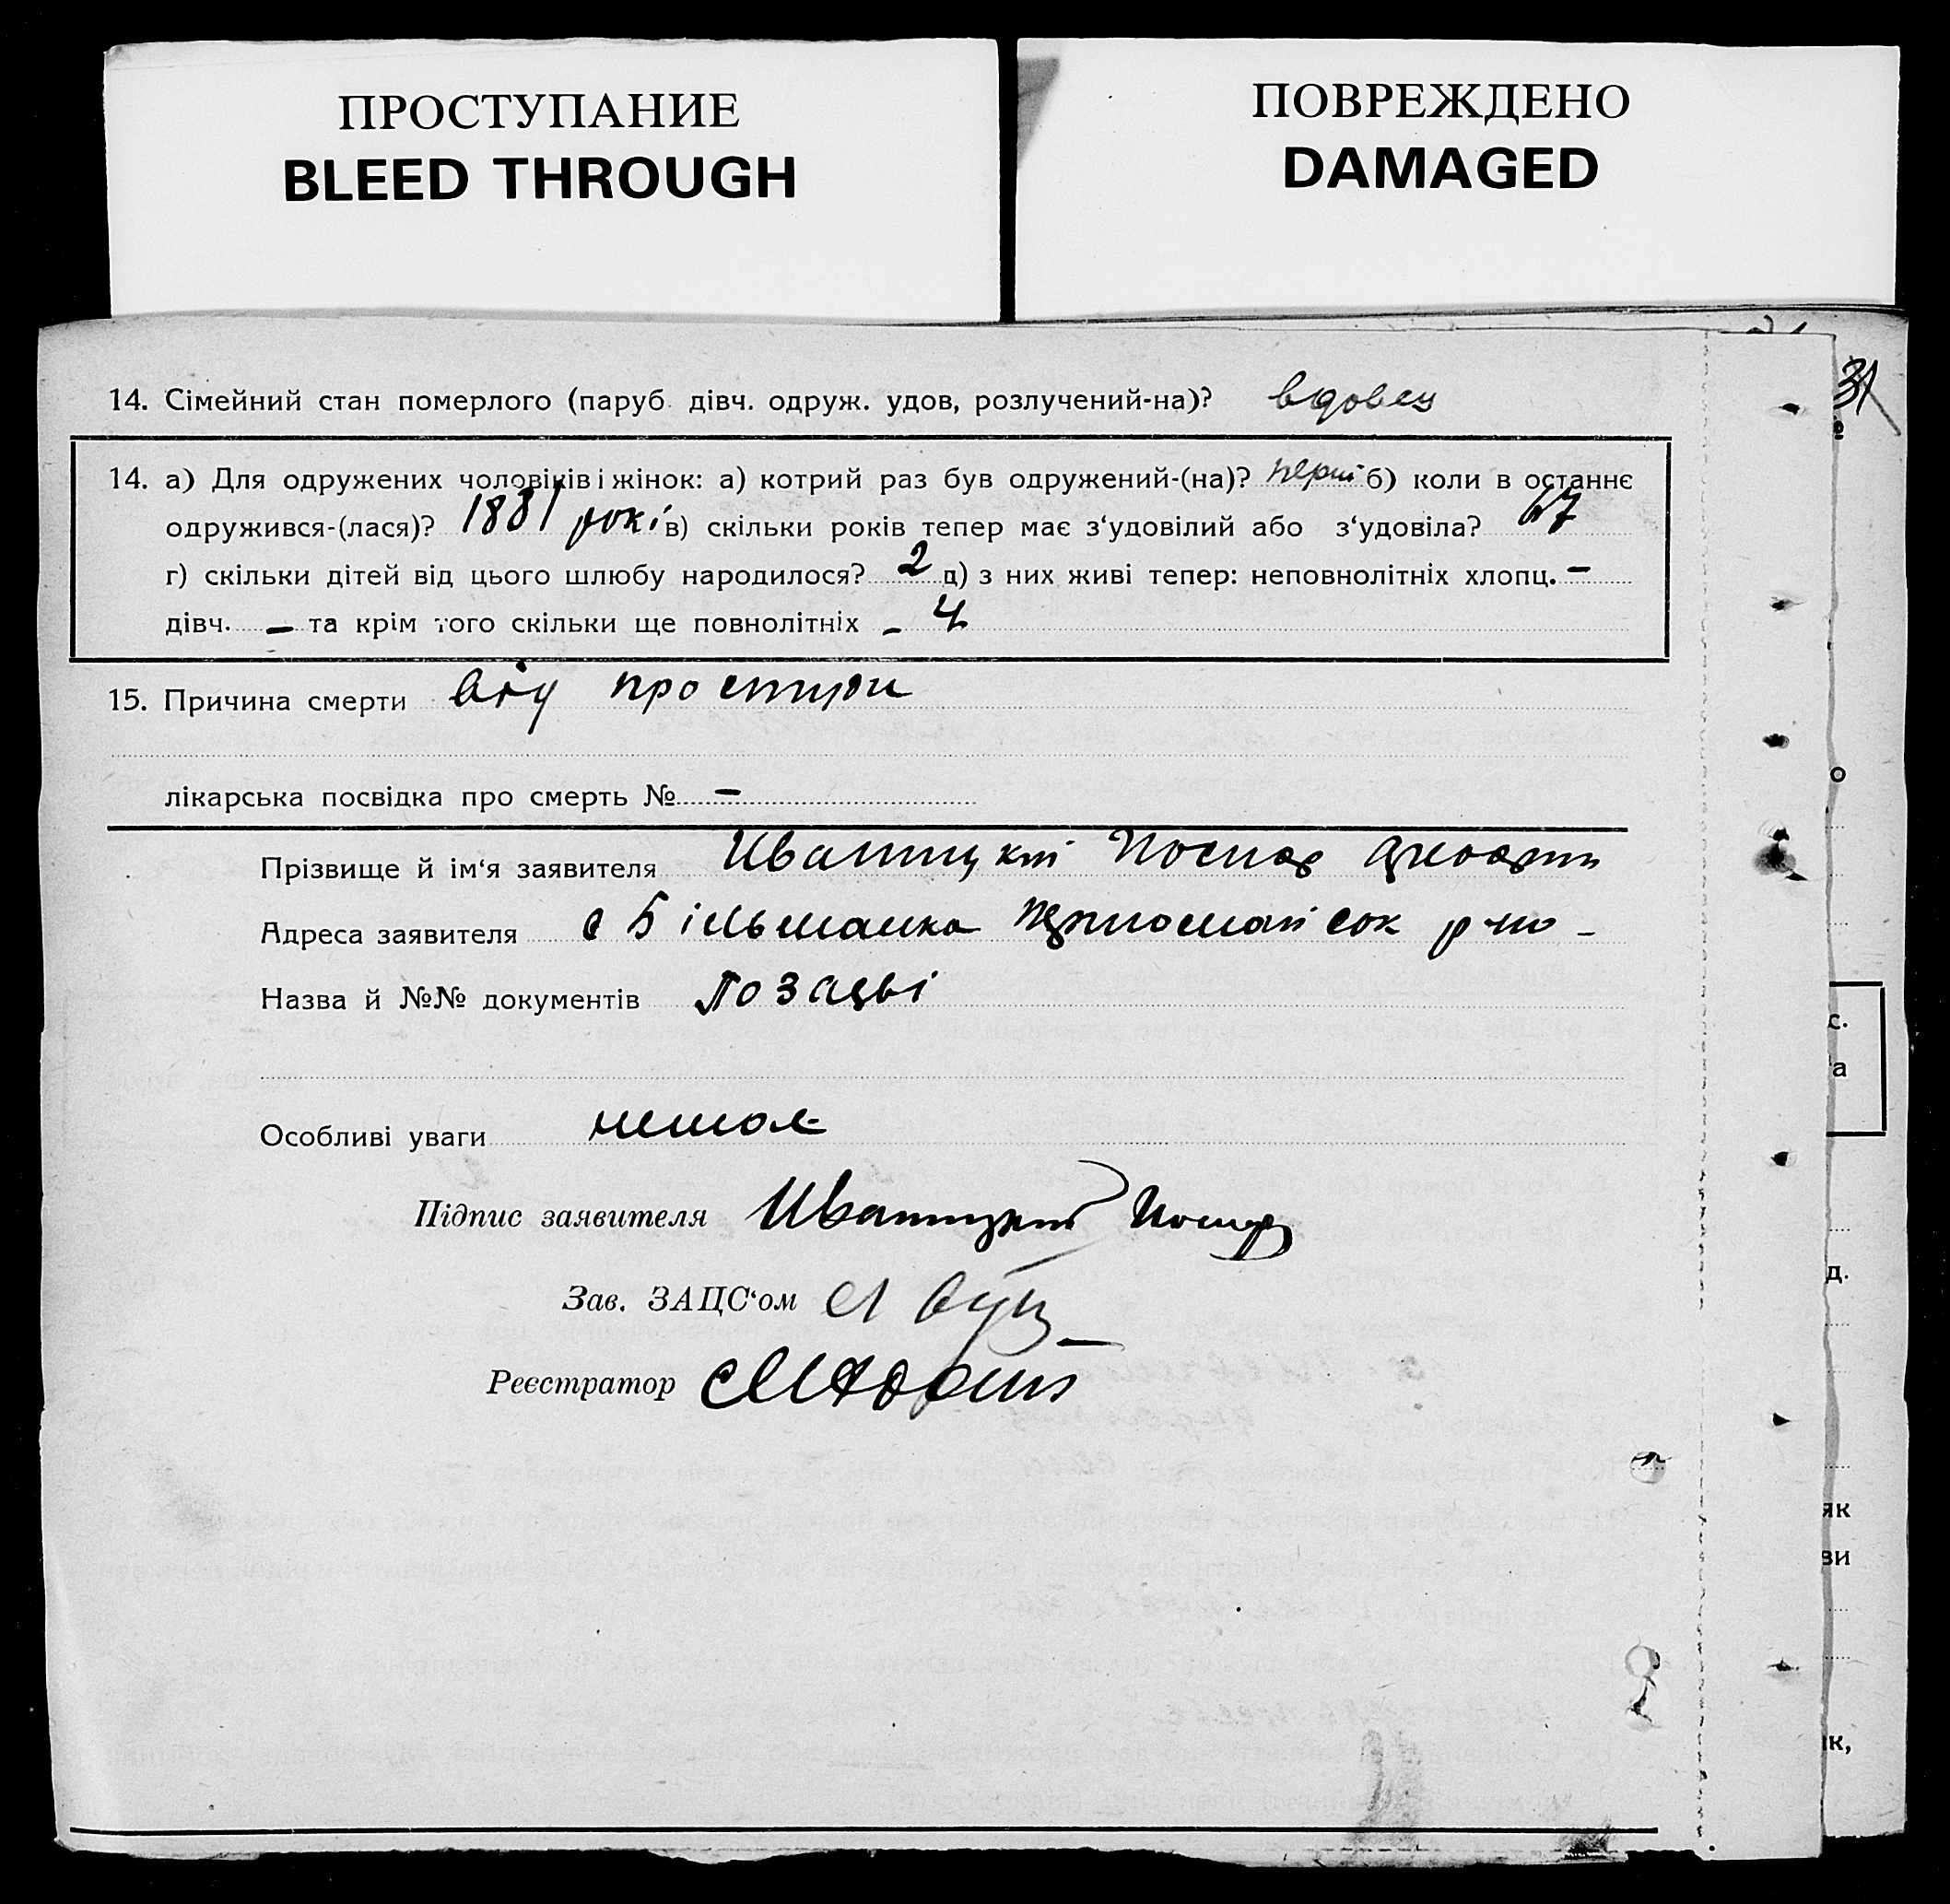 ПРОСТУПАНИЕ
BLEED THROUGH
ПОВРЕЖДЕНО
DAMAGED
31
14. Сімейний стан померлого (паруб. дівч. одруж. удов, розлучений-на)? вдовец
14. а) Для одружених чоловіків і жінок: а) котрий раз був одружений-(на)? перш б) коли в останнє
одружився-(лася)? 1881 рокі в) скільки років тепер має з‘удовілий або з‘удовіла? 67
г) скільки дітей від цього шлюбу народилося? 2 д) з них живі тепер: неповнолітніх хлопц. –
дівч. – та крім того скільки ще повнолітніх – 4
15. Причина смерти від простури
лікарська посвідка про смерть № –
Прізвище й ім‘я заявителя
Адреса заявителя с Більманка
Назва й №№ документів
Особливі уваги немає
Підпис заявителя
Зав. ЗАЦС‘ом
Реєстратор
о
с.
та
д.
як
ви
ік,